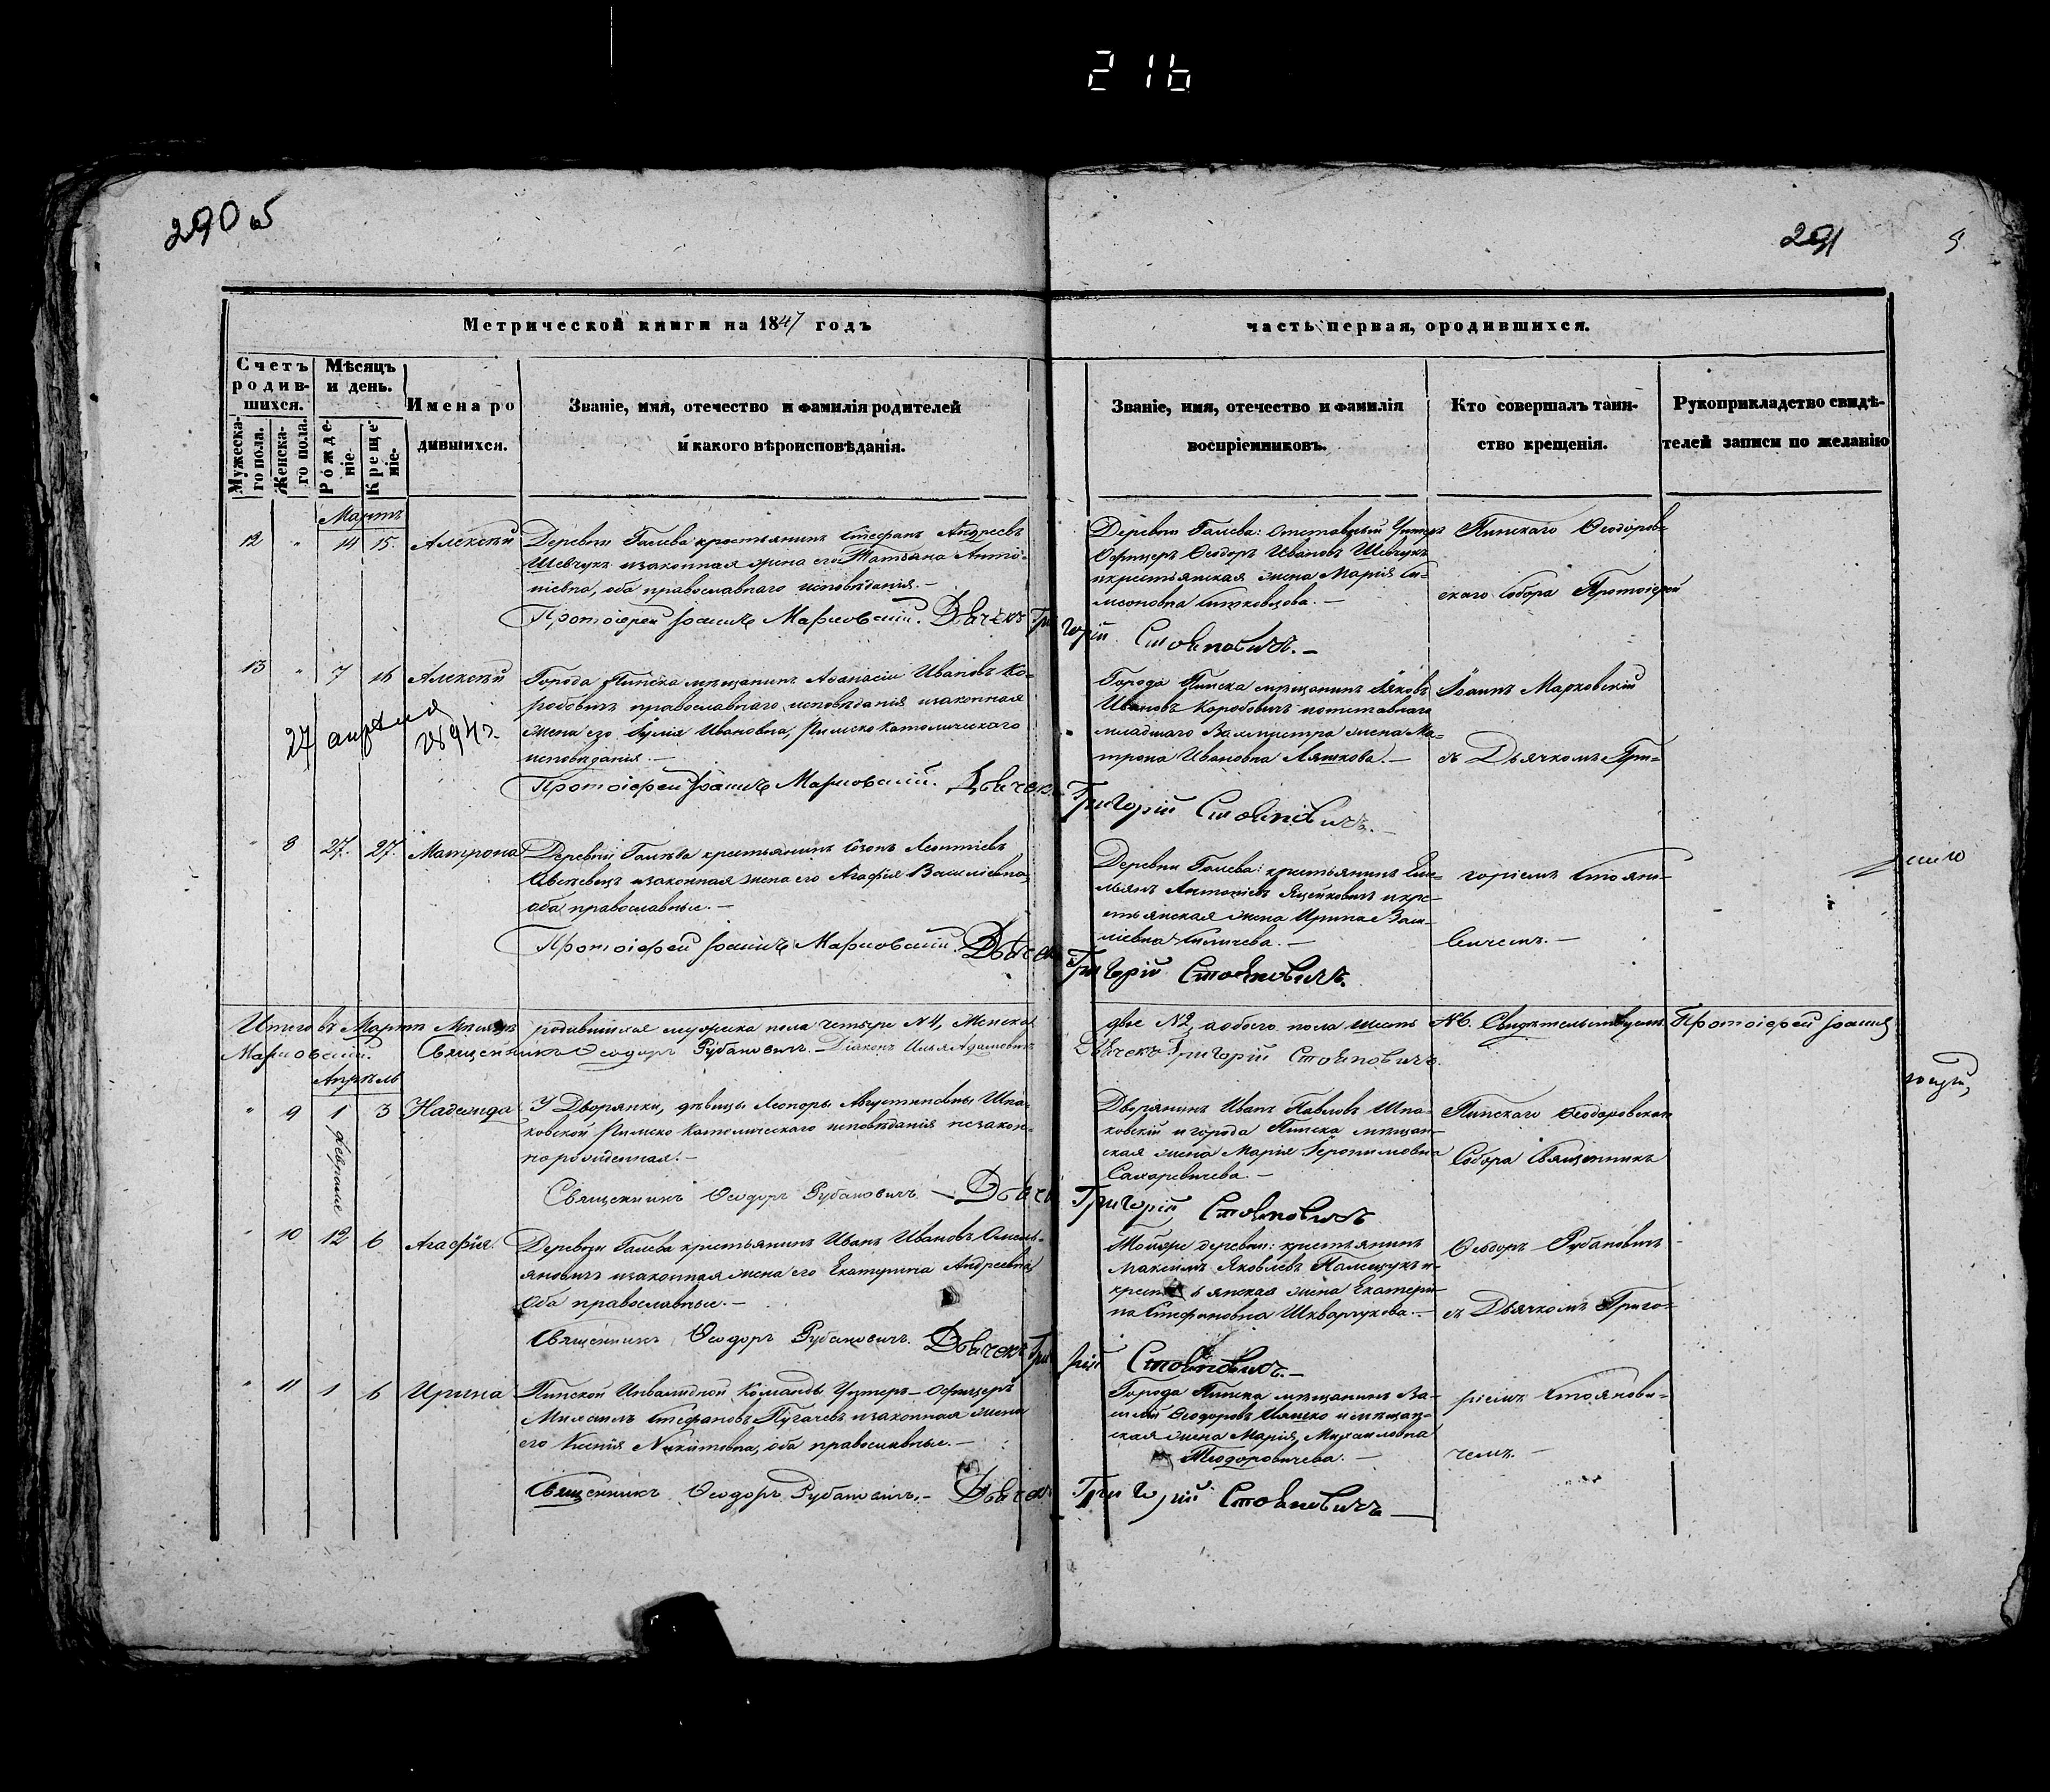 216
290 б
291
5
Метрической книги на 1847 годъ
часть первая, ородившихся.
Счетъ родив-шихся.
Мѣсяцъ и день.
Имена ро
дившихся.
Званіе, имя, отечество и фамилія родителей
и какого вѣроисповѣданія.
Званіе, имя, отечество и фамилія
воспріемниковъ.
Кто совершалъ таин-
ство крещенія.
Рукоприкладство свидѣ-
телей записи по желанію
Мужеска-го пола.
Женска-го пола.
Рожде-ніе.
Креще-ніе.
Мартъ
12 " 14 15. Алексѣй
Деревни Галева крестьянинъ Стефанъ Андреевъ
Шевчукъ изаконная жена его Татьяна Анто-
ніевна, оба православнаго исповѣданія.—
Протоіерей Іоаннъ Марковскій. Дьячекъ Гри
горій Стояновичъ.—
Деревни Галева: отставный Унтеръ
Офицеръ Ѳеодоръ Ивановъ Шевчукъ
икрестьянская жена Марія Си-
меоновна
Пинскаго Ѳеодоров-
скаго Собора Протоіерей
13 " 7 16 Алексѣй
Города Пинска мѣщанинъ Аѳанасій Ивановъ Ко-
робовичъ православнаго исповѣданія изаконная
жена его Іулія Ивановна, Римско Католическаго
исповѣданія.—
Протоіерей Іоаннъ Марковскій. Дьячек
Григорій Стояновичъ.—
27 апреля
1894 г.
Города Пинска мѣщанинъ Яковъ
Ивановъ Коробовичъ иотставнаго
младшаго жена Ма-
трона Ивановна Ляшкова.—
Іоаннъ Марковскій
съ Дьячкомъ Гри-
" 8 27. 27. Матрона
Деревни Галева крестьянинъ Леонтіевъ
изаконная жена его Агафія Василіевна,
оба православные.—
Протоіерей Іоаннъ Марковскій. Дьячек
Григорій Стояновичъ.
Деревни Галева: крестьянинъ Еме-
льянъ Антоніевъ Яцейковичъ икре-
стьянская жена Ирина Васи-
ліевна
горіемъ Стояно-
вичемъ.—
Итого въ Мартѣ Мѣсяцѣ родившихся мужеска пола четыре №4, Женска
двое №2, аобоего пола шесть №6. Свидѣтельствуемъ Протоіерей Іоаннъ
Марковскій. Священникъ Ѳеодоръ Рубановичъ.— Діаконъ Илья Адамовичъ
Дьячекъ Григорій Стояновичъ.
Апрѣль
" 9 1 3 Надежда
февраля
У Дворянки, дѣвицы Леоноры Августиновны Шпа-
ковской Римско Католическаго исповѣданія незакон-
норожденная.—
Священникъ Ѳеодоръ Рубановичъ — Дьячек
Григорій Стояновичъ
Дворянинъ Иванъ Павловъ Шпа-
ковскій игорода Пинска мѣщан-
ская жена Марія Іеронимовна
Сахаревичева.—
Пинскаго Ѳеодоровскаго
Собора Священникъ
" 10 12 6 Агафія.
Деревни Галева крестьянинъ Иванъ Ивановъ Омель-
яновичъ изаконная жена его Екатерина Андреевна,
Оба православные.—
Священникъ Ѳеодоръ Рубановичъ. Дьячекъ Гри
рій Стояновичъ.—
Тойже деревни: крестьянинъ
Максимъ Яковлевъ Полещукъ и
крестьянская жена Екатери-
на Стефановна Шкварчукова.—
Ѳеодоръ Рубановичъ
съ Дьячкомъ Григо-
" 11 1 6 Ирина
Пинской Инвалидной Команды Унтеръ-Офицеръ
Максимъ Стефановъ Пугачевъ изаконная жена
его Ксенія Никитовна, оба православные.—
Священникъ Ѳеодоръ Рубановичъ.— Дьячек
Григорій Стояновичъ
Города Пинска мѣщанинъ Ва-
силій Ѳеодоровъ имѣщан-
ская жена Марія Михаиловна
Теодоровичева.—
ріемъ Станови-
чемъ.—